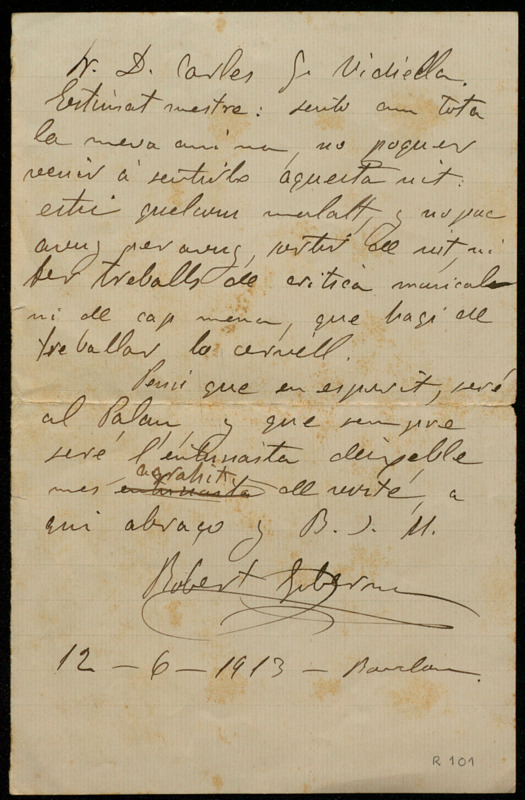 Sr. D. Carles G. Vidiella.
Estimat mestre: sento am tota
la meva anima, no poguer
venir á sentirlo aquesta nit:
estic quelcom malalt, y no puc
avuy per avuy, sortir de nit, ni
fer treballs de critica musical
ni de cap mena, que hagi de
treballar lo cervell.
Pensi que en esperit, seré
al Palau, y que sempre
seré l'entusiasta deixeble
agrahit
mes entusiasta de vosté, a
qui abraço y B. S. M.
Robert Goberna
12 - 6 - 1913 - Barcelona.
R 101